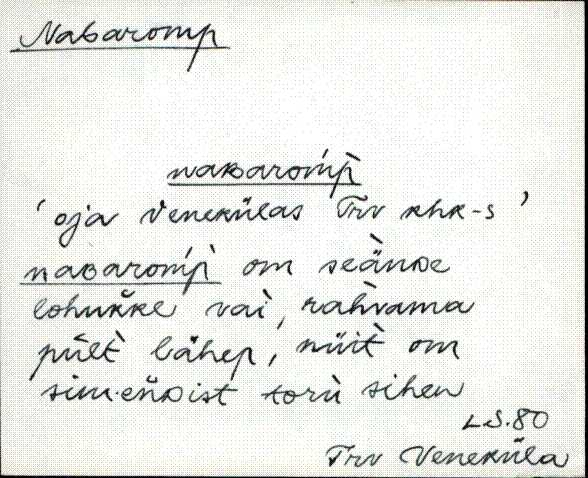 Nabaromp
naʙaromp̀
‘oja Veneküläs Trv khk-s’
naʙaromp̀ om seänᴅe
lohukke vai, rahvama
pält lähep, nüit om
sim·enᴅist torù sihen
L.S.80
Trv Veneküla